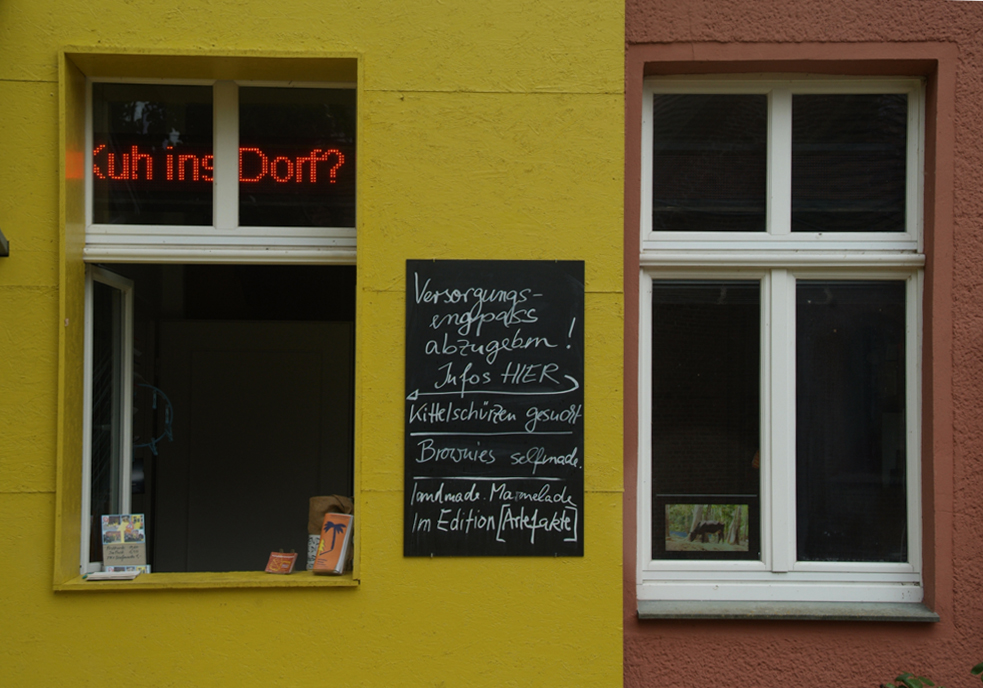 Kuh ins Dorf?
Versorgungs-
engpass
abzugeben!
Infos HIER
Kittelschürzen gesucht
Brownies selfmade.
landmade. Marmelade
Im Edition [Artefakte]